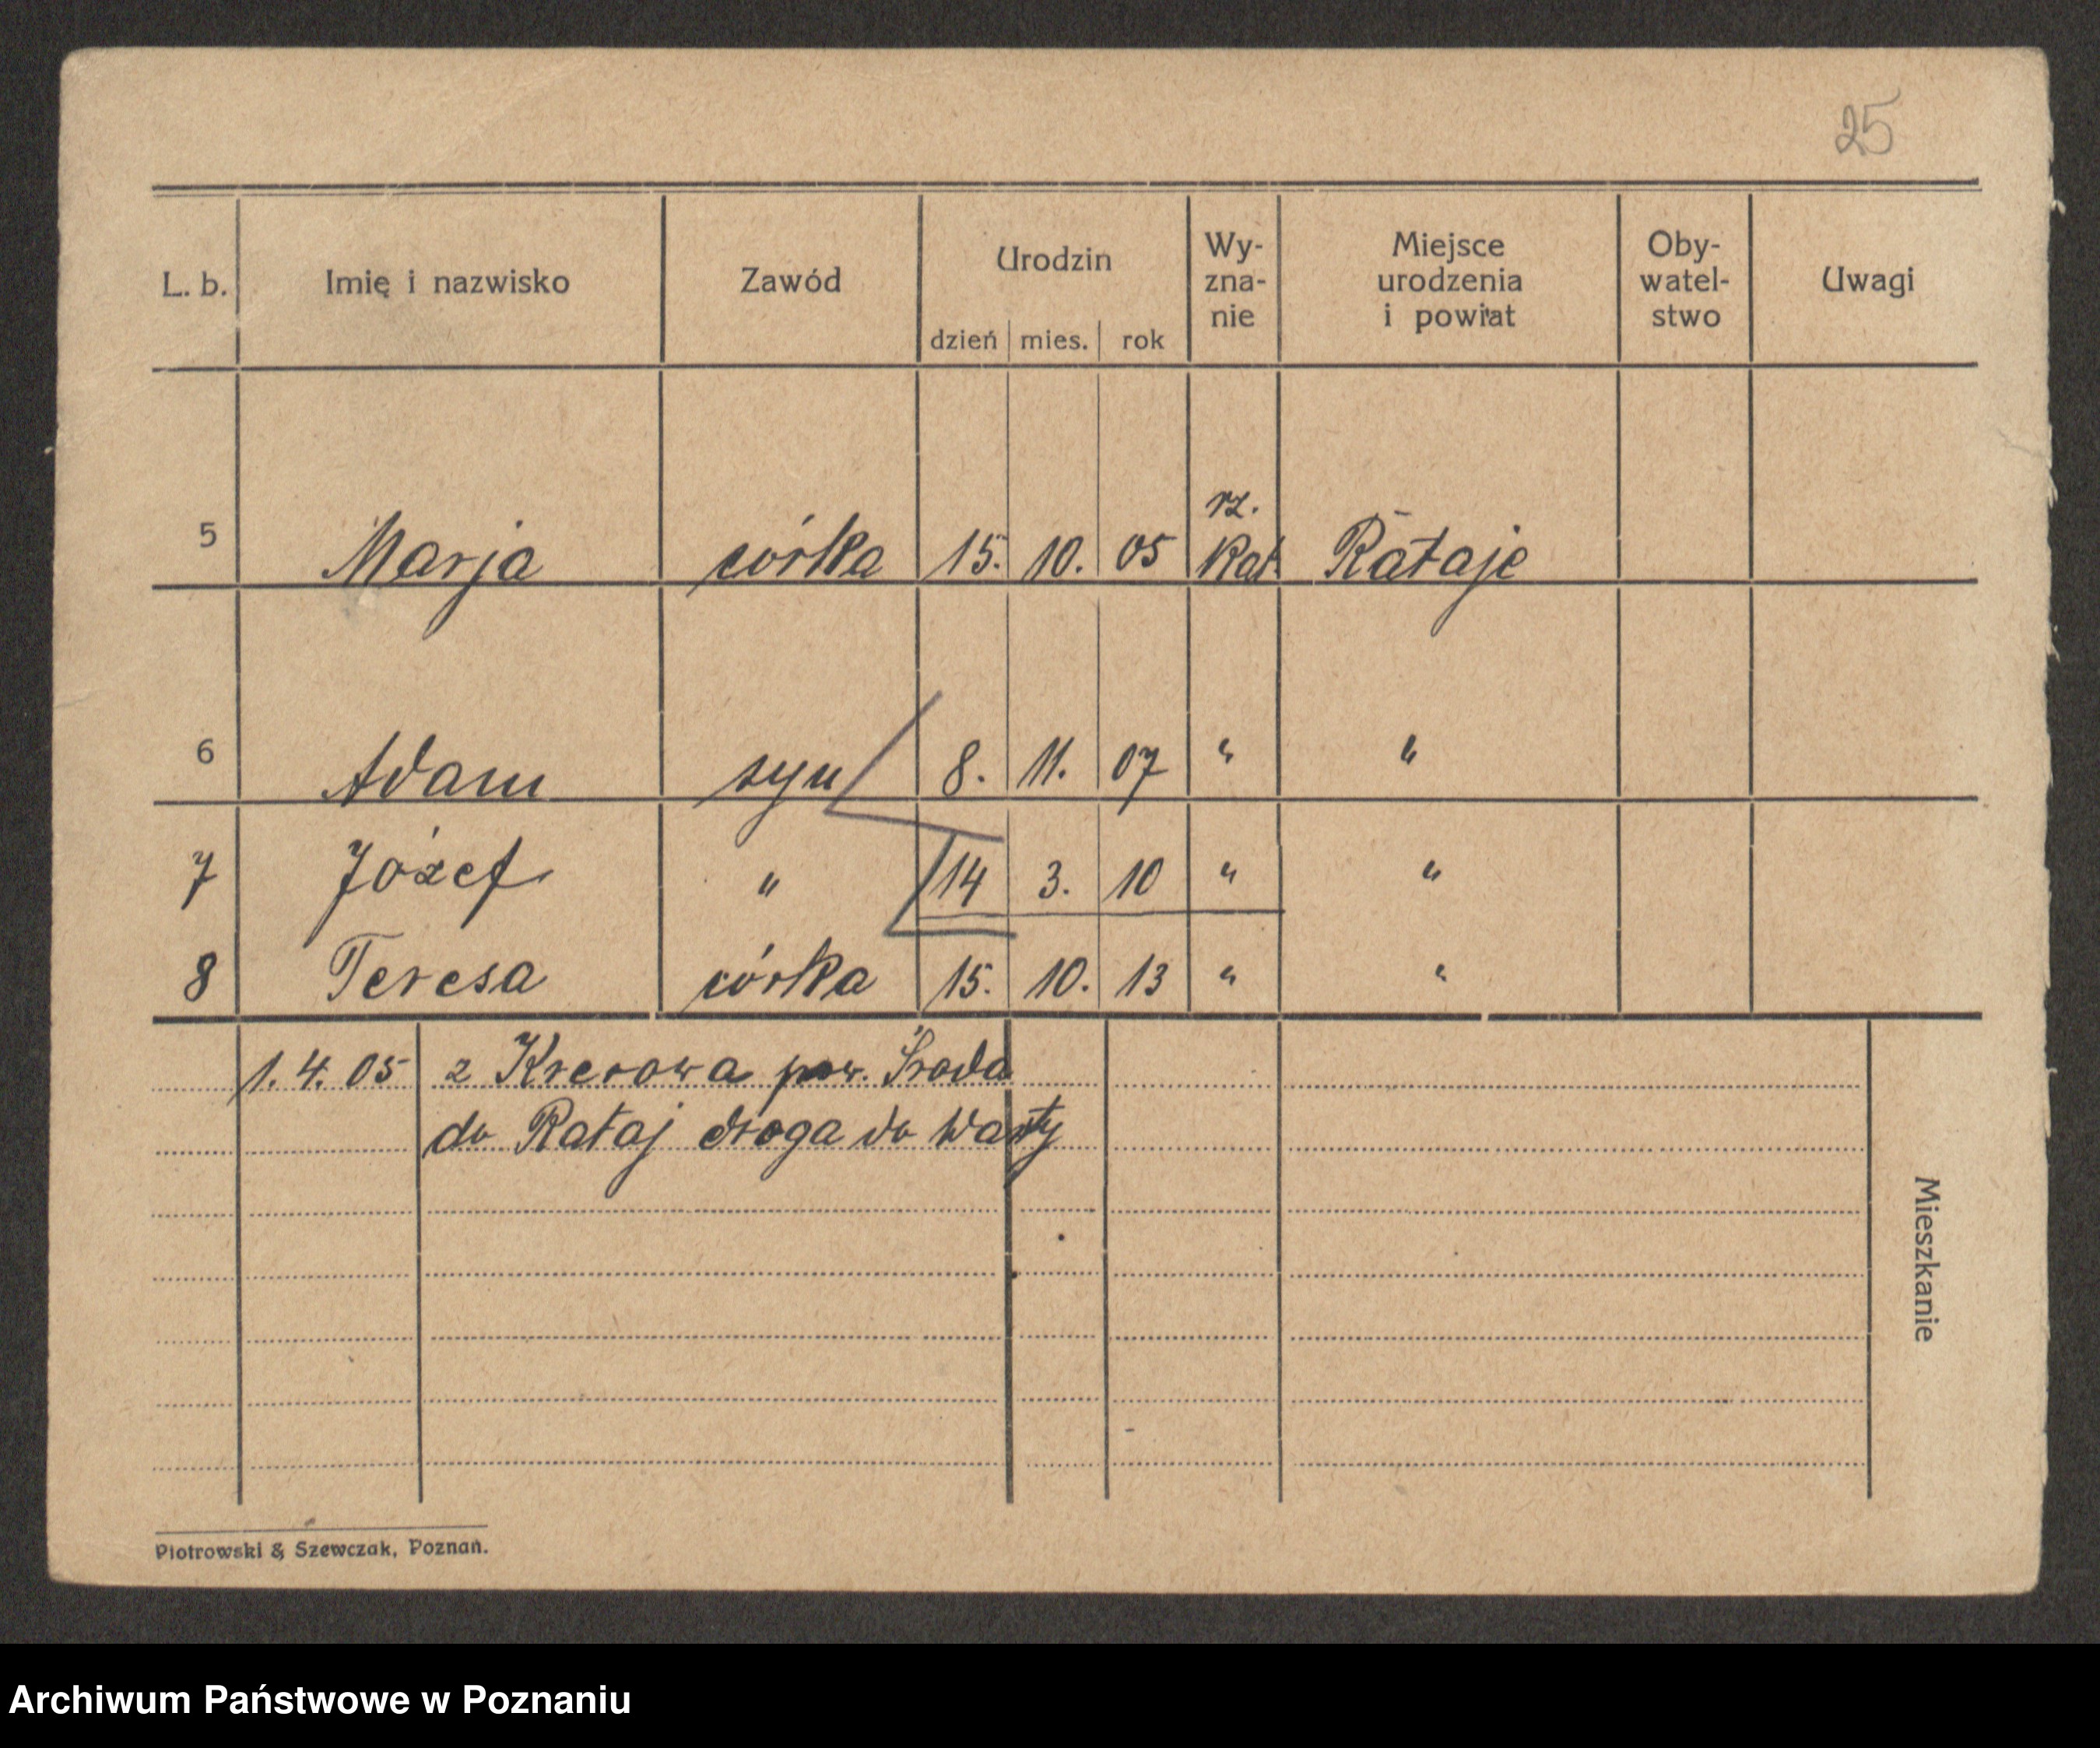 25
L. b. Imię i nazwisko Zawód Urodzin dzień mies. rok Wy-zna-nie Miejsce urodzenia i powiat Oby-watel-stwo Uwagi
5 Marja córka 15. 10. 05 rz. Kat. Rataje
6 Adam syn 8. 11. 07 " "
7 Józef " 14 3. 10 " "
8 Teresa córka 15. 10. 13 " "
1. 4. 05 z Krerowa pow. Środa
do Rataj droga do Warty
Mieszkanie
Piotrowski & Szewczak, Poznań.
Archiwum Państwowe w Poznaniu